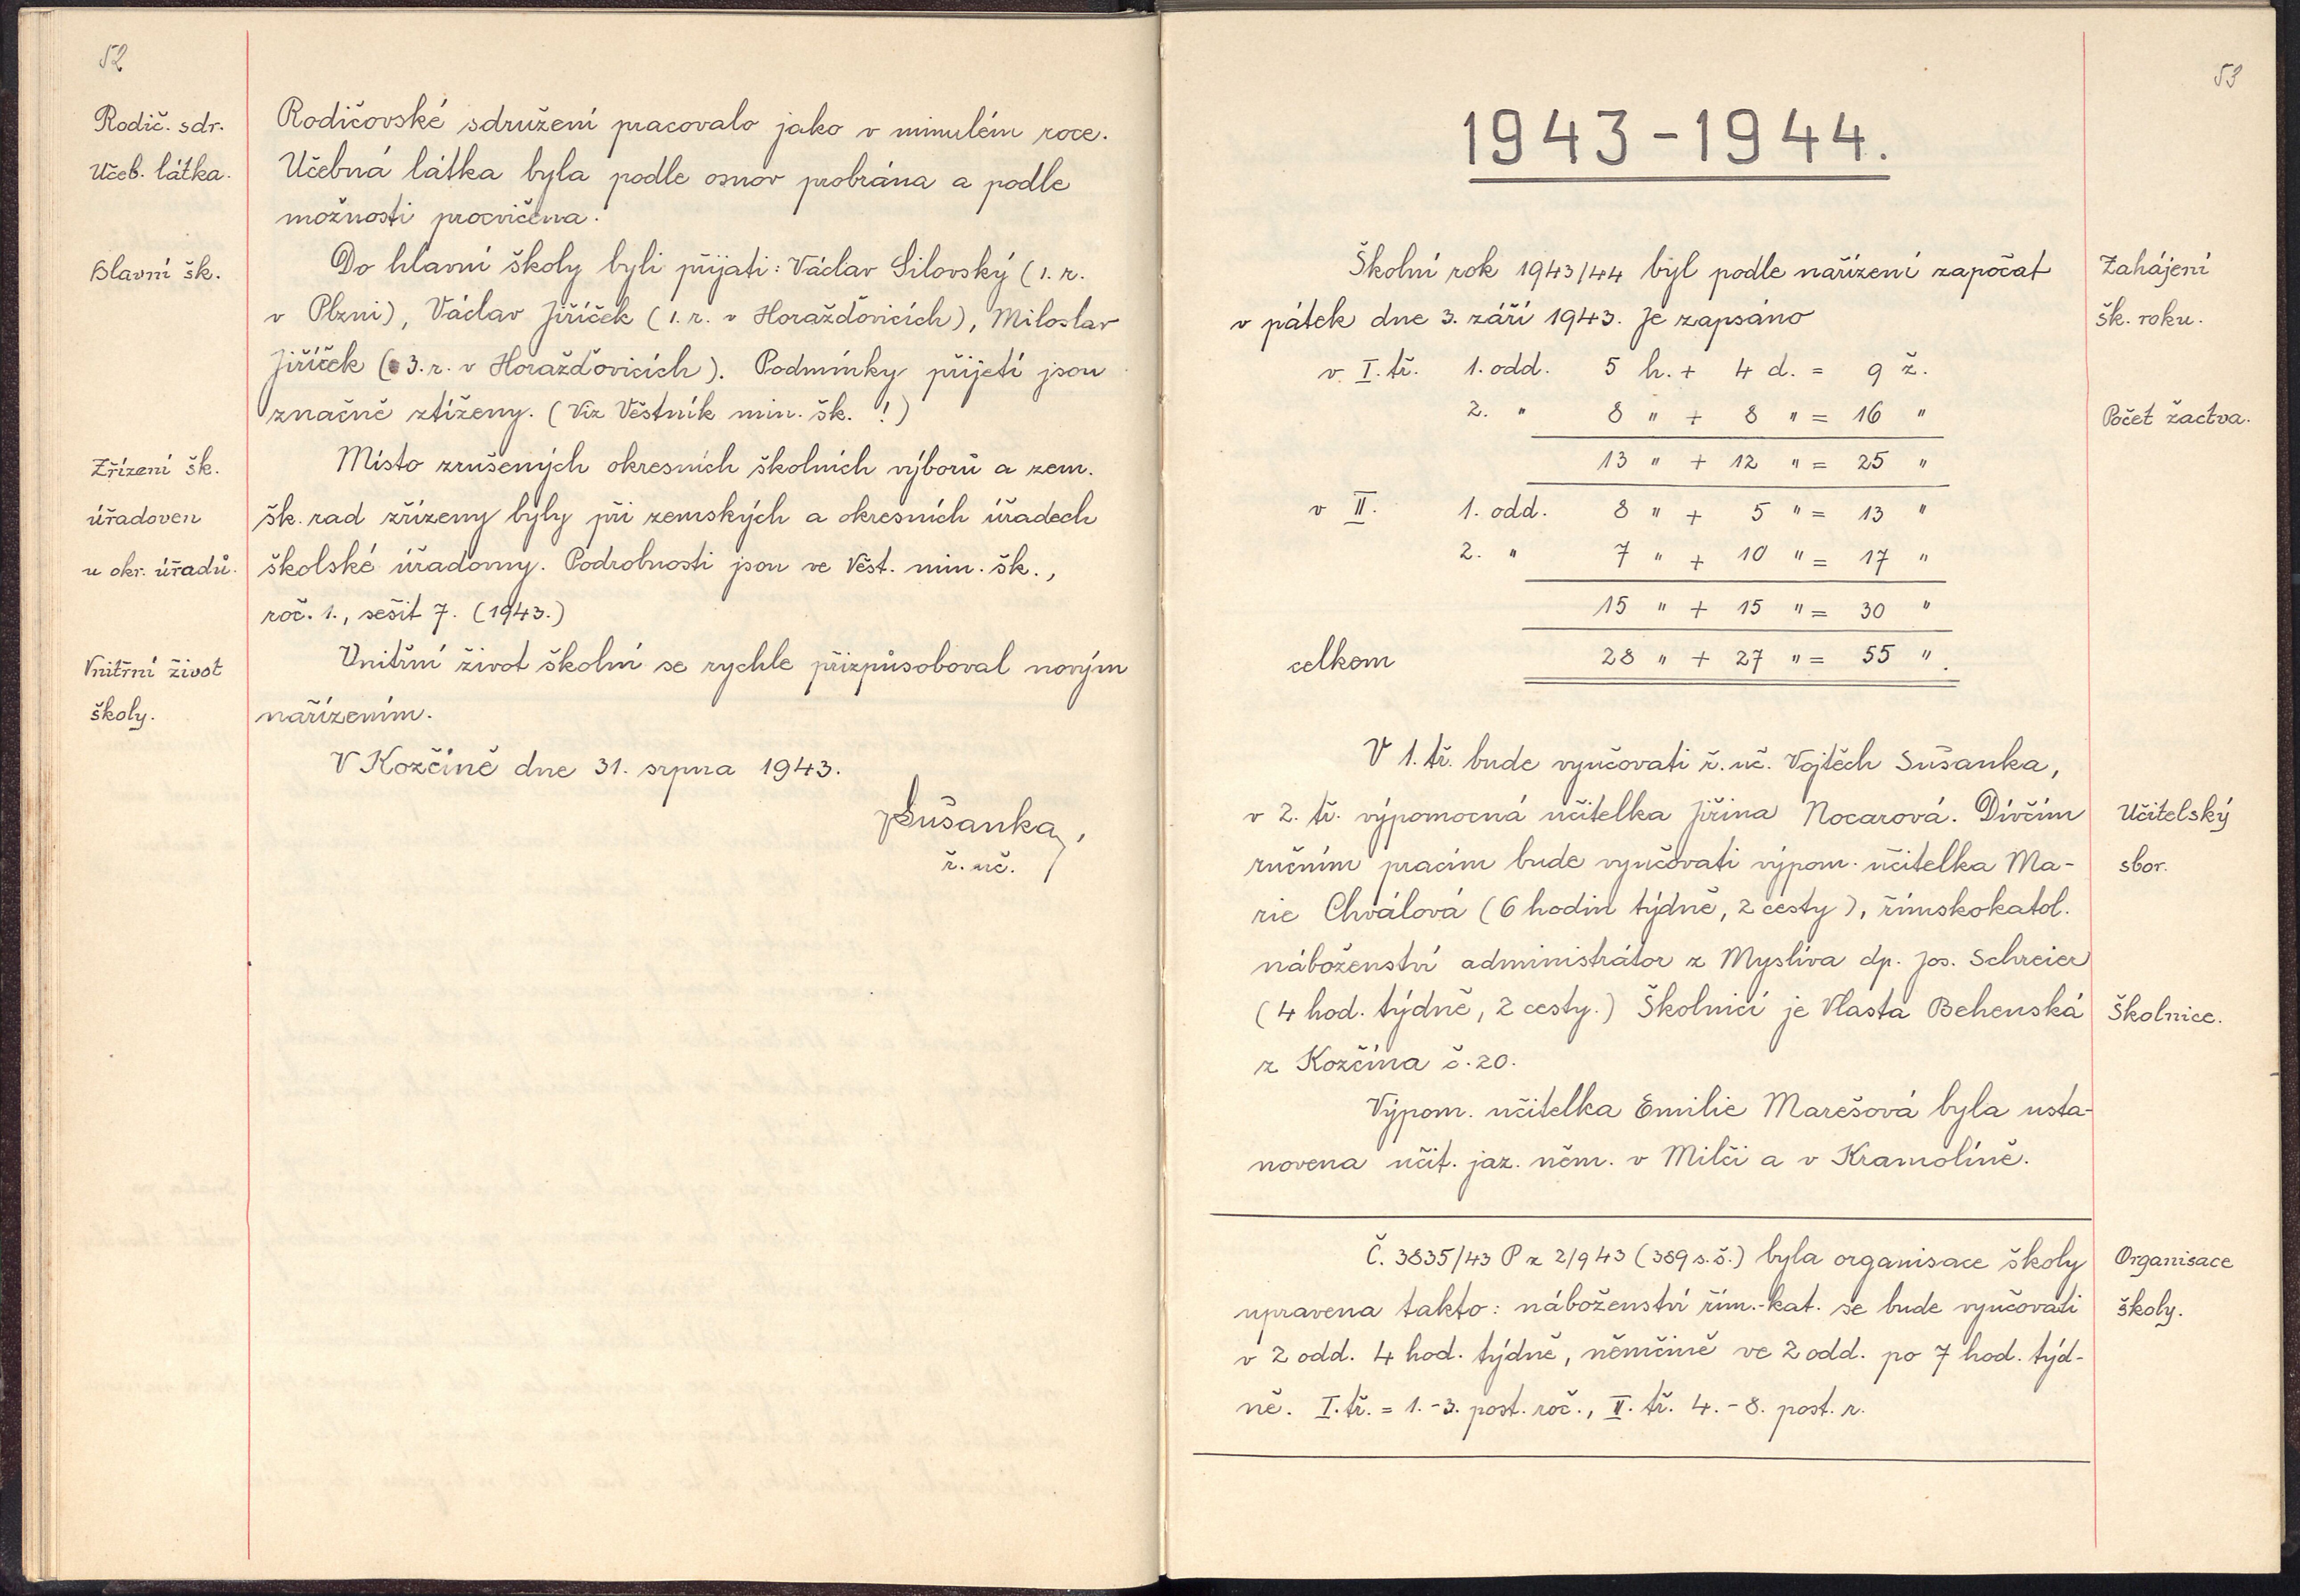 52
Rodič. sdr.
Rodičovské sdružení pracovalo jako v minulém roce.
Učeb. látka.
Učebná látka byla podle osnov probrána a podle
možnosti procvičena.
Hlavní šk.
Do hlavní školy byli přijati: Václav Silovský (1. r.
v Plzni), Václav Jiříček (1. r. v Horažďovicích), Miloslav
Jiříček (3. r. v Horažďovicích). Podmínky přijetí jsou
značně ztíženy. (Viz Věstník min. šk. !)
Zřízení šk.
úřadoven
u okr. úřadů.
Místo zrušených okresních školních výborů a zem.
šk. rad zřízeny byly při zemských a okresních úřadech
školské úřadovny. Podrobnosti jsou ve Věst. min. šk.,
roč. 1., sešit 7. (1943.)
Vnitřní život
školy.
Vnitřní život školní se rychle přizpůsoboval novým
nařízením.
V Kozčíně dne 31. srpna 1943.
VSušanka,
ř. uč.
53
1943-1944.
Školní rok 1943/44 byl podle nařízení započat
v pátek dne 3. září 1943. Je zapsáno
Zahájení
šk. roku.
v I. tř. 1. odd. 5 h. + 4 d. = 9 ž.
2. " 8 " + 8 " = 16 "
Počet žactva.
13 " + 12 " = 25 "
v II. 1. odd. 8 " + 5 " = 13 "
2. " 7 " + 10 " = 17 "
15 " + 15 " = 30 "
celkem 28 " + 27 " = 55 ".
V 1. tř. bude vyučovati ř. uč. Vojtěch Sušanka,
v 2. tř. výpomocná učitelka Jiřina Nocarová. Dívčím
ručním pracím bude vyučovati výpom. učitelka Ma-
rie Chválová (6 hodin týdně, 2 cesty), římskokatol.
náboženství administrátor z Myslíva dp. Jos. Schreier
(4 hod. týdně, 2 cesty.) Školnicí je Vlasta Behenská
z Kozčína č. 20.
Učitelský
sbor.
Školnice.
Výpom. učitelka Emilie Marešová byla usta-
novena učit. jaz. něm. v Milči a v Kramolíně.
Č. 3835/43 P z 2/9 43 (389 s. š.) byla organisace školy
upravena takto: náboženství řím.-kat. se bude vyučovati
v 2 odd. 4 hod. týdně, němčině ve 2 odd. po 7 hod. týd-
ně. I. tř. = 1.-3. post. roč., II. tř. 4.-8. post. r.
Organisace
školy.